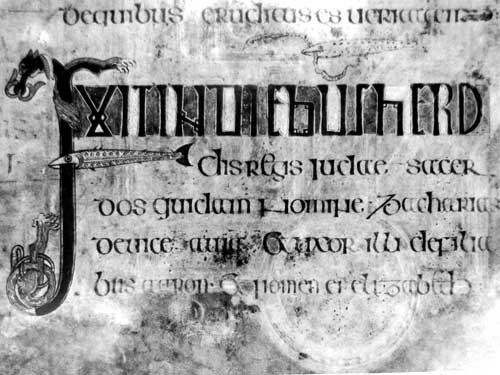 dequibus eruditus es ueritatem
FUITINDIEBUShERO
dis regis iudae sacer
dos quidam nomine zacharias
deuice abia & uxor illi defilia
bus aaron & nomen ei elizabeth